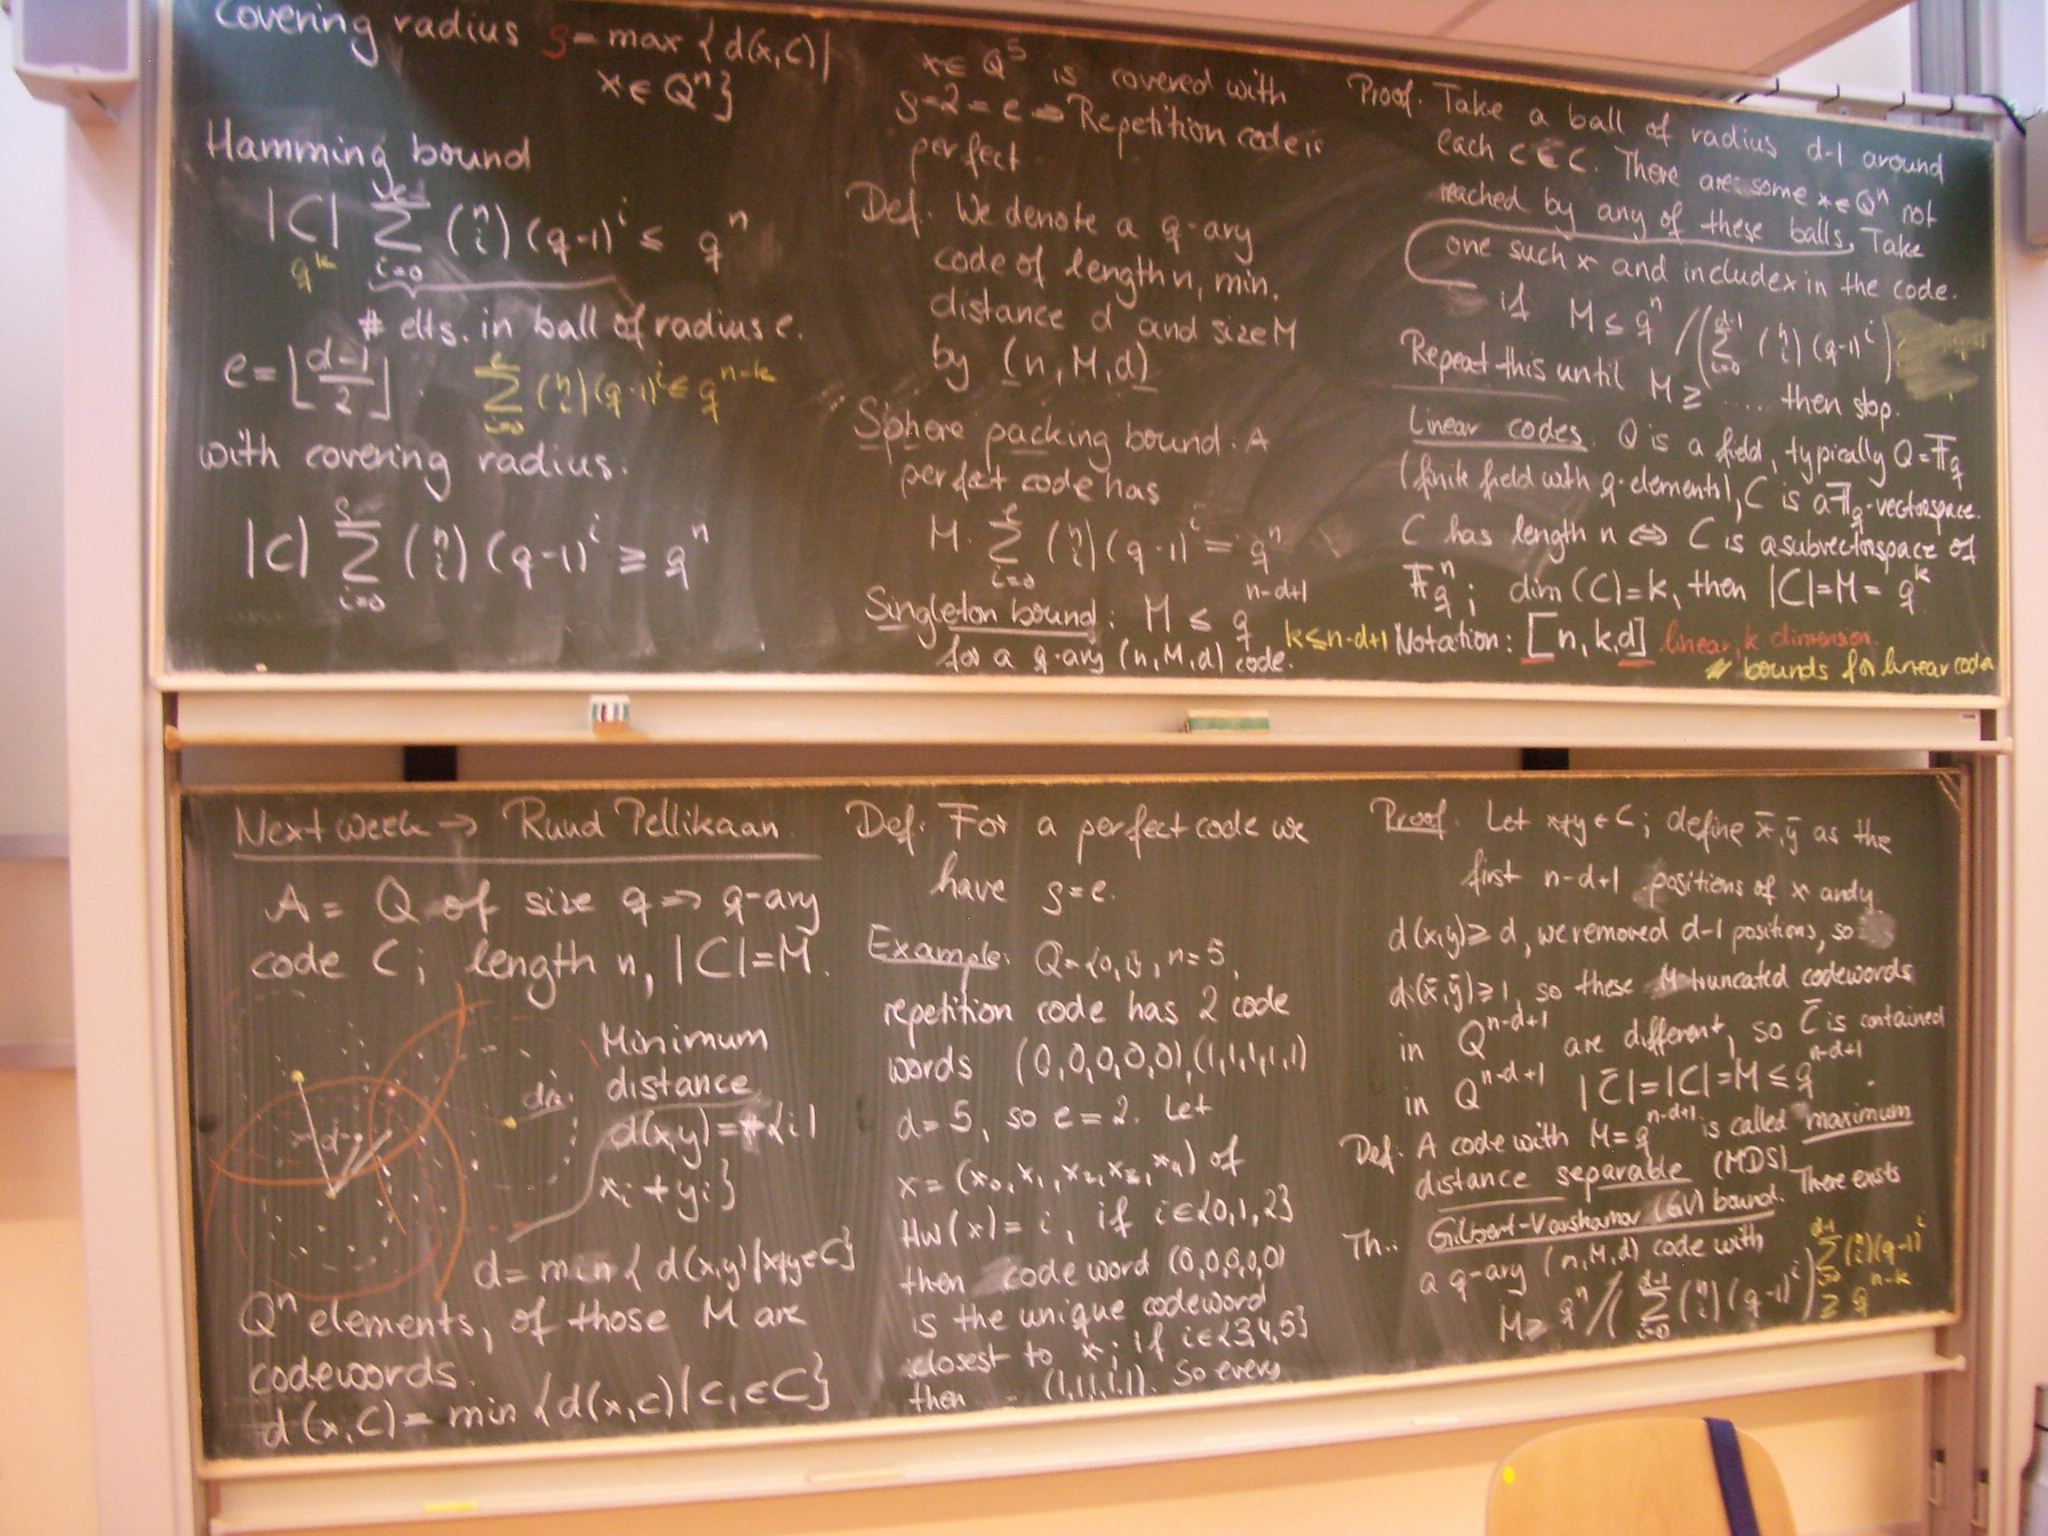 Covering radius ρ = max {d(x,C) |
x ∈ Qⁿ}
Hamming bound
|C| ∑_{i=0}^{e} (n i) (q-1)^i ≤ qⁿ
q^k
# elts. in ball of radius e.
e = ⌊(d-1)/2⌋. ∑_{i=0}^{e} (n i) (q-1)^i ≤ q^{n-k}
with covering radius:
|C| ∑_{i=0}^{ρ} (n i) (q-1)^i ≥ qⁿ
x ∈ Q⁵ is covered with
ρ=2=e ⇒ Repetition code is
perfect.
Def. We denote a q-ary
code of length n, min.
distance d and size M
by (n, M, d)
Sphere packing bound: A
perfect code has
M. ∑_{i=0}^{e} (n i) (q-1)^i = qⁿ
Singleton bound: M ≤ q^{n-d+1}
k ≤ n-d+1
for a q-ary (n, M, d) code.
Proof. Take a ball of radius d-1 around
each c ∈ C. There are some x ∈ Qⁿ not
reached by any of these balls, Take
one such x and include x in the code.
if M ≤ qⁿ / (∑_{i=0}^{d-1} (n i) (q-1)^i)
Repeat this until M ≥ .... then stop.
Linear codes. Q is a field, typically Q = 𝔽_q
(finite field with q elements), C is a 𝔽_q-vectorspace.
C has length n ⇔ C is a subvectorspace of
𝔽_qⁿ; dim (C) = k, then |C| = M = q^k
Notation: [n, k, d] linear, k dimension.
bounds for linear code
Next week → Ruud Pellikaan
A = Q of size q ⇒ q-ary
code C; length n, |C| = M.
Minimum
distance
d(x,y) = # {i |
x_i ≠ y_i}
d
d = min { d(x,y) | x≠y∈C}
Qⁿ elements, of those M are
codewords.
d(x,C) = min {d(x,c) | c ∈ C}
Def. For a perfect code we
have ρ = e.
Example: Q = {0,1}, n = 5,
repetition code has 2 code
words (0,0,0,0,0), (1,1,1,1,1)
d = 5, so e = 2. Let
x = (x₀, x₁, x₂, x₃, x₄) of
Hw(x) = i, if i ∈ {0,1,2}
then code word (0,0,0,0,0)
is the unique codeword
closest to x; if i ∈ {3,4,5}
then - (1,1,1,1,1). So every
Proof. Let x≠y ∈ C; define x̄, ȳ as the
first n-d+1 positions of x and y.
d(x,y) ≥ d, we removed d-1 positions, so
d(x̄,ȳ) ≥ 1, so these M truncated codewords
in Q^{n-d+1} are different, so C̄ is contained
in Q^{n-d+1} |C̄| = |C| = M ≤ q^{n-d+1}.
Def. A code with M = q^{n-d+1} is called maximum
distance separable (MDS)
Th.: Gilbert-Varshamov (GV) bound. There exists
a q-ary (n, M, d) code with
M ≥ qⁿ / (∑_{i=0}^{d-1} (n i) (q-1)^i)
∑_{i=0}^{d-1} (n i) (q-1)^i
≥ q^{n-k}